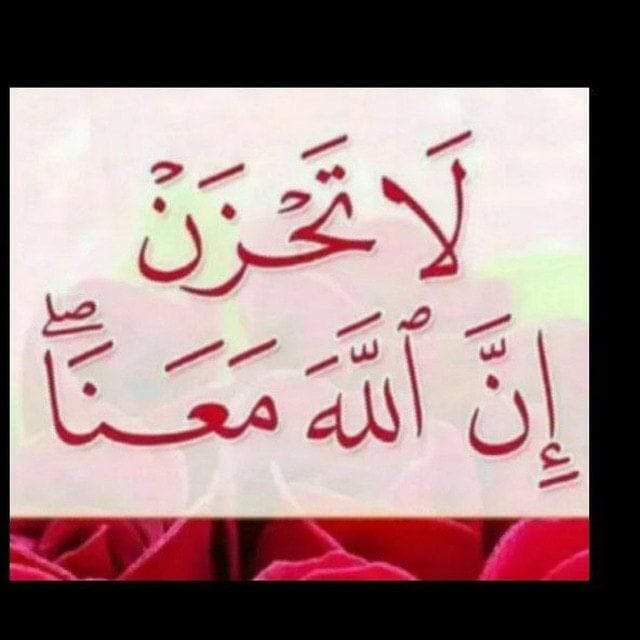 لَا تَحْزَنْ
إِنَّ ٱللَّهَ مَعَنَاۖ